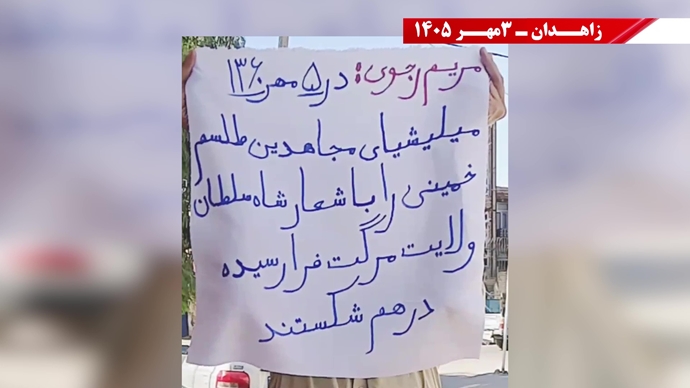 زاهدان ـ ۳مهر ۱۴۰۵
مریم رجوی: در ۵ مهر ۱۳۶۰
میلیشیای مجاهدین طلسم
خمینی را با شعار شاه سلطان
ولایت مرگت فرا رسیده
درهم شکستند